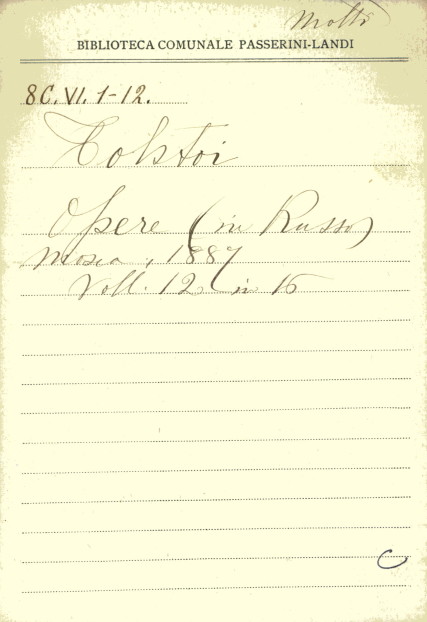 Motti
BIBLIOTECA COMUNALE PASSERINI-LANDI
8C. VI. 1-12.
Tolstoi
Opere (in Russo)
Mosca, 1887
Voll. 12 in 16
C